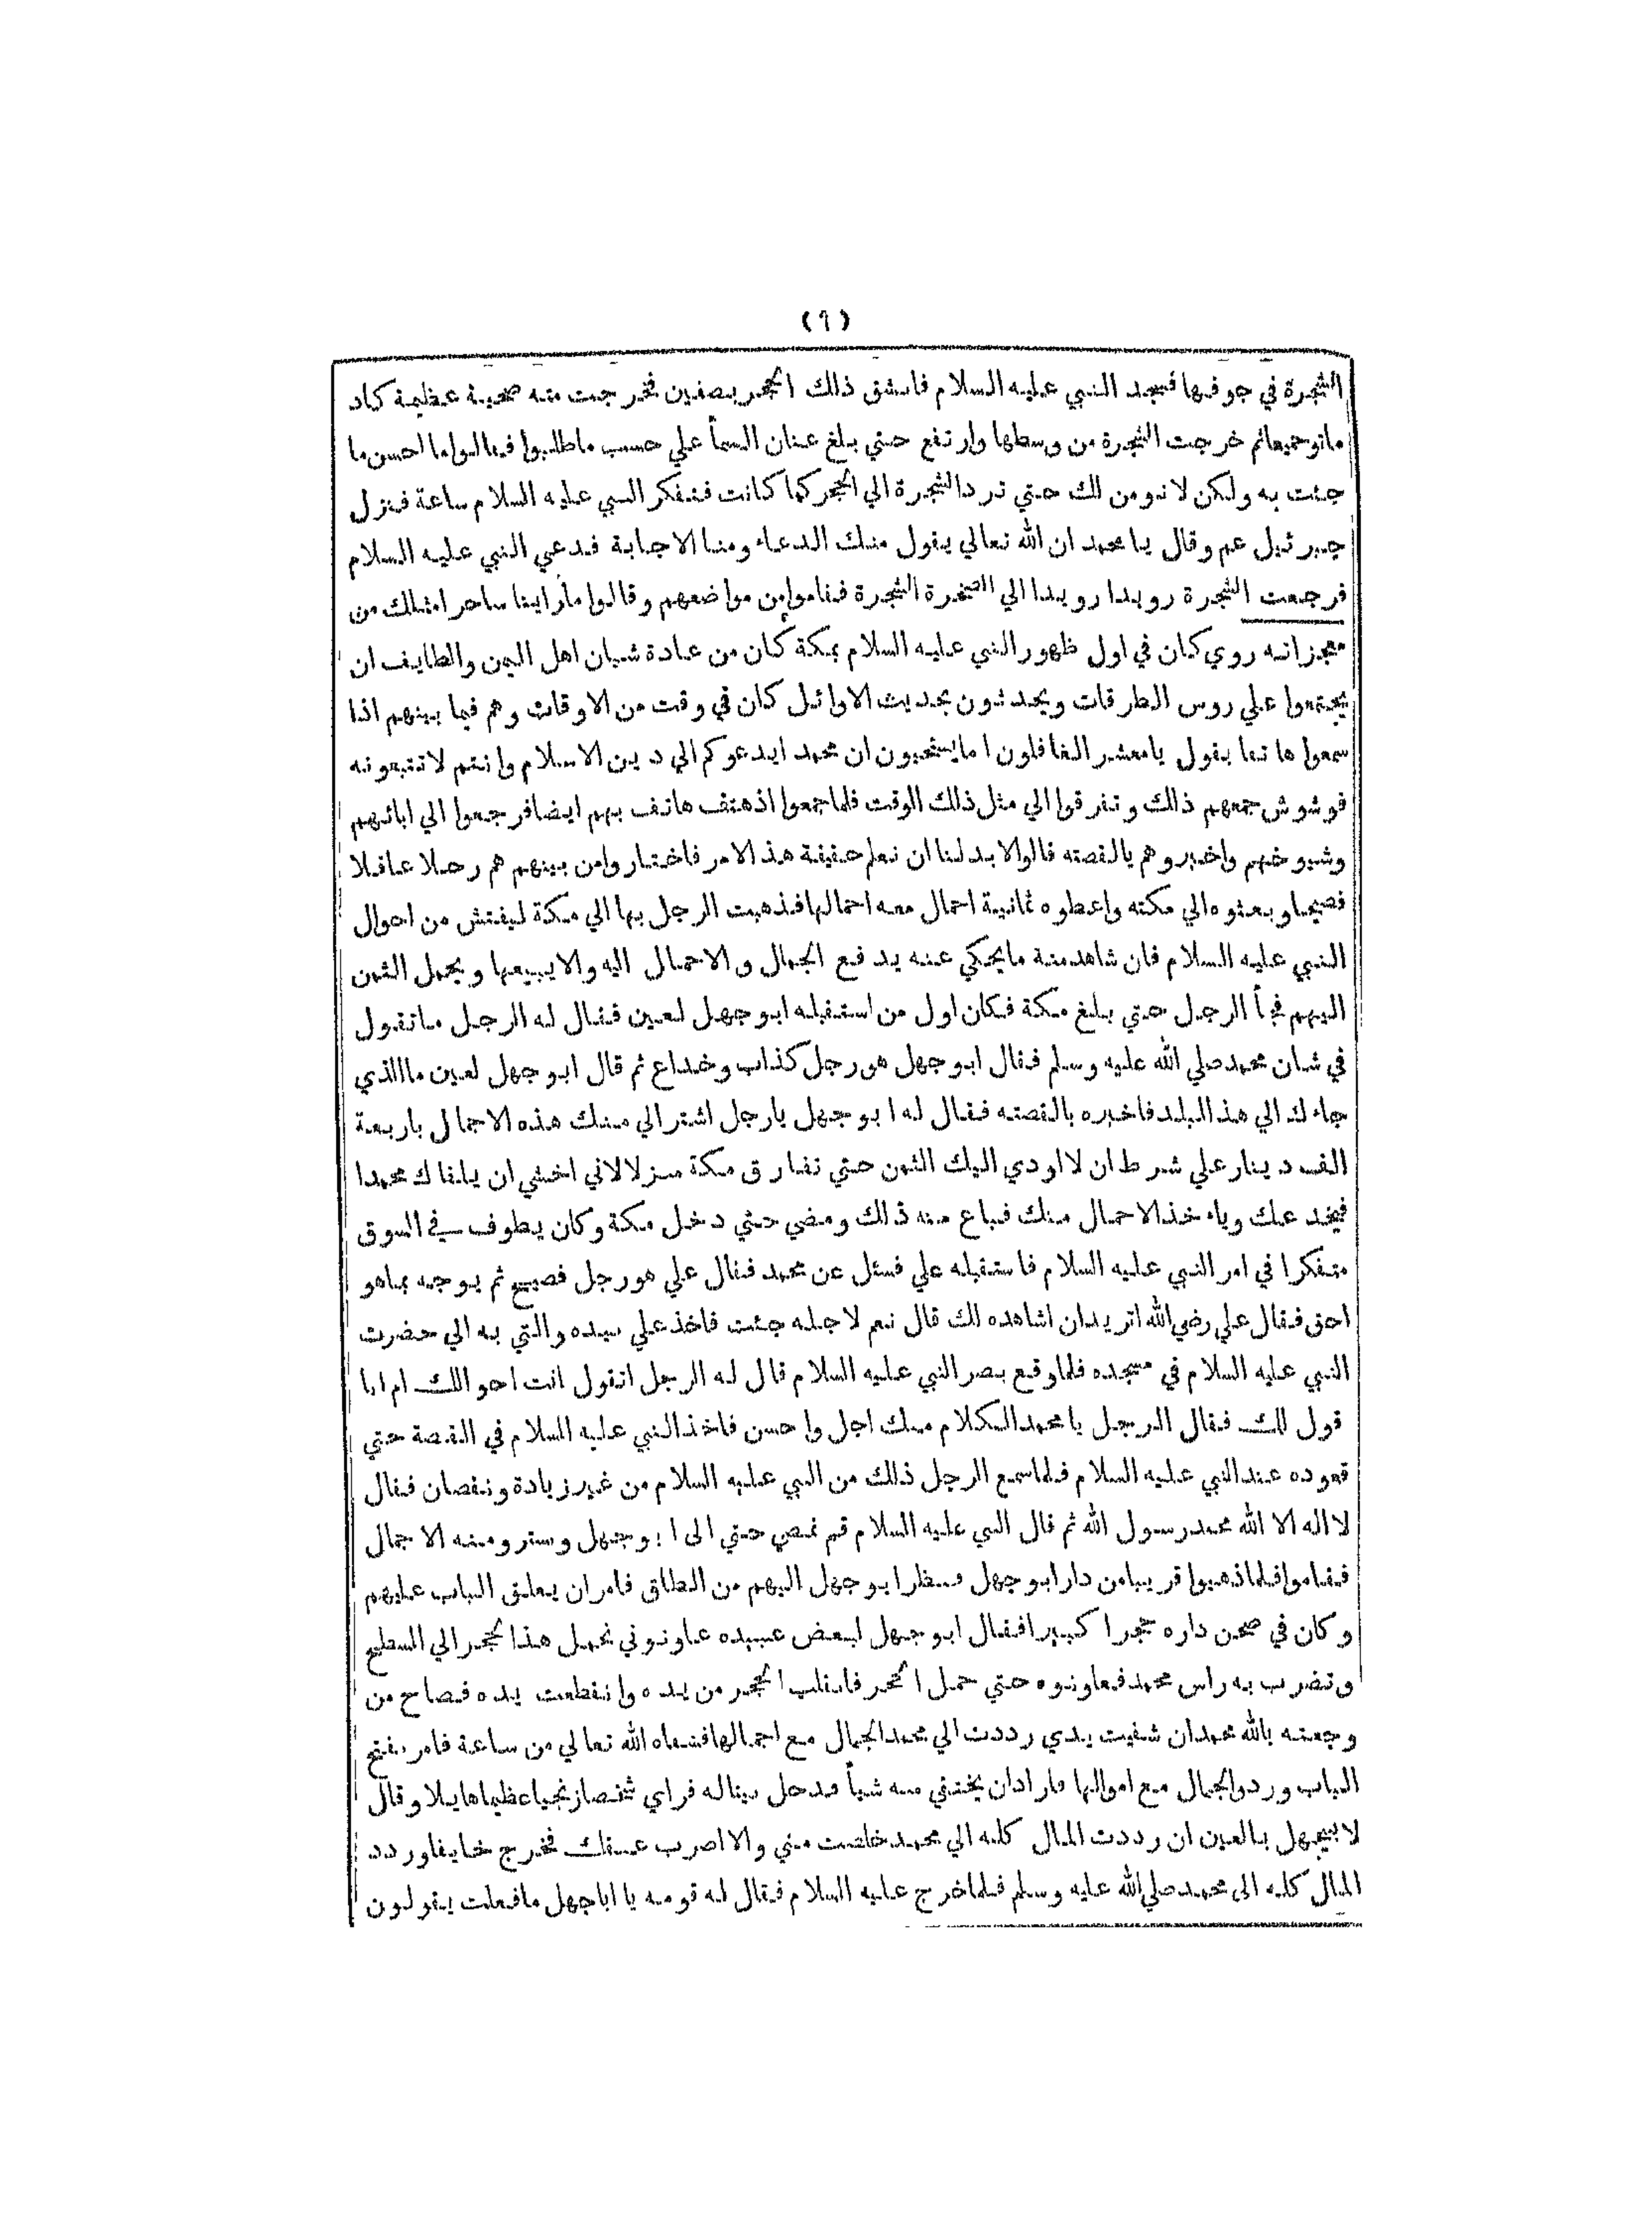 (٦)
الشجرة في جوفها فسجد النبي عليه السلام فانشق ذلك الحجر بصفين فخرجت منه صحية عظيمة كاد
ماتو جميعا ثم خرجت الشجرة من وسطها وارتفع حتي بلغ عنان السمأ علي حسب ما طلبوا فقالوا ما احسن ما
جئت به ولكن لا نومن لك حتي ترد الشجرة الي الحجر كما كانت فتفكر النبي عليه السلام ساعة فنزل
جبرئيل عم وقال يا محمد ان الله تعالي يقول منك الدعاء ومنا الاجابة فدعي النبي عليه السلام
فرجعت الشجرة رويدا رويدا الي الصخرة الشجرة فقاموا من مواضعهم وقالوا ما رأينا ساحرا مثلك من
معجزاته روي كان في اول ظهور النبي عليه السلام بمكة كان من عادة شبان اهل اليمن والطايف ان
يجتمعوا علي روس الطرقات ويحدثون بحديث الاوائل كان في وقت من الاوقات وهم فيما بينهم اذا
سمعوا هاتفا يقول يا معشر الغافلون اما يستحيون ان محمد ايدعوكم الي دين الاسلام وانتم لا تتبعونه
فوشوش جمعهم ذلك وتفرقوا الي مثل ذلك الوقت فلما جمعوا اذ هتف هاتف بهم ايضا فرجعوا الي ابائهم
وشيوخهم واخبروهم بالقصته قالوا لابد لنا ان نعلم حقيقة هذ الامر فاختاروا من بينهم هم رجلا عاقلا
فصيحا وبعثوه الي مكته واعطوه ثمانية احمال معه احمالها فذهبت الرجل بها الي مكة ليفتش من احوال
النبي عليه السلام فان شاهد منة ما يحكي عنه يدفع الجمال والاحمال اليه والا يبيعها ويحمل الثمن
اليهم فجأ الرجل حتي بلغ مكة فكان اول من استقبله ابو جهل لعين فقال له الرجل ما تقول
في شان محمد صلي الله عليه وسلم فقال ابو جهل هو رجل كذاب وخداع ثم قال ابو جهل لعين ما الذي
جاءك الي هذ البلد فاخبره بالقصته فقال له ابو جهل يا رجل اشتر الي منك هذه الاجمال باربعة
الف دينار علي شرط ان لا اودي اليك الثمن حتي تفارق مكة منزلا لاني اخشي ان يلقاك محمدا
فيخدعك وياءخذ الاحمال منك فباع منه ذلك ومضي حتي دخل مكة وكان يطوف في السوق
متفكرا في امر النبي عليه السلام فاستقبله علي فسئل عن محمد فقال علي هو رجل فصيح ثم يوجه بماهو
احق فقال علي رضي الله اتريد ان اشاهده لك قال نعم لاجله جئت فاخذ علي بيده والتي به الي حضرت
النبي عليه السلام في مسجده فلما وقع بصر النبي عليه السلام قال له الرجل اتقول انت احوالك ام انا
قول لك فقال الرجل يا محمد الكلام منك اجل واحسن فاخذ النبي عليه السلام في القصة حتي
قعوده عند النبي عليه السلام فلما سمع الرجل ذلك من النبي عليه السلام من غير زيادة ونقصان فقال
لا اله الا الله محمد رسول الله ثم قال النبي عليه السلام قم نمضي حتي الى ابو جهل وستر ومنه الاجمال
فقاموا فلما ذهبوا قريبا من دار ابو جهل ونظر ابو جهل اليهم من الطاق فامر ان يغلق الباب عليهم
وكان في صحن داره حجرا كبيرا فقال ابو جهل لبعض عبيده عاونوني نحمل هذا لحجر الي السطح
ونضرب به راس محمد فعاونوه حتي حمل الحجر فانقلب الحجر من يده وانقطعت يده فصاح من
وجعته بالله محمد ان شفيت يدي رددت الي محمد الجمال مع اجمالها فشفاه الله تعالي من ساعة فامر بفتح
الباب وردوا الجمال مع اموالها فاراد ان يختفي منه شيأ فدخل بيتا له فراي شخصا زنجيا عظيما هايلا وقال
لابيجهل بالعين ان رددت المال كله الي محمد خلصت مني والا اضرب عنقك فخرج خايفا وردد
المال كله الى محمد صلي الله عليه وسلم فلما خرج عليه السلام فقال له قومه يا ابا جهل ما فعلت يقولون